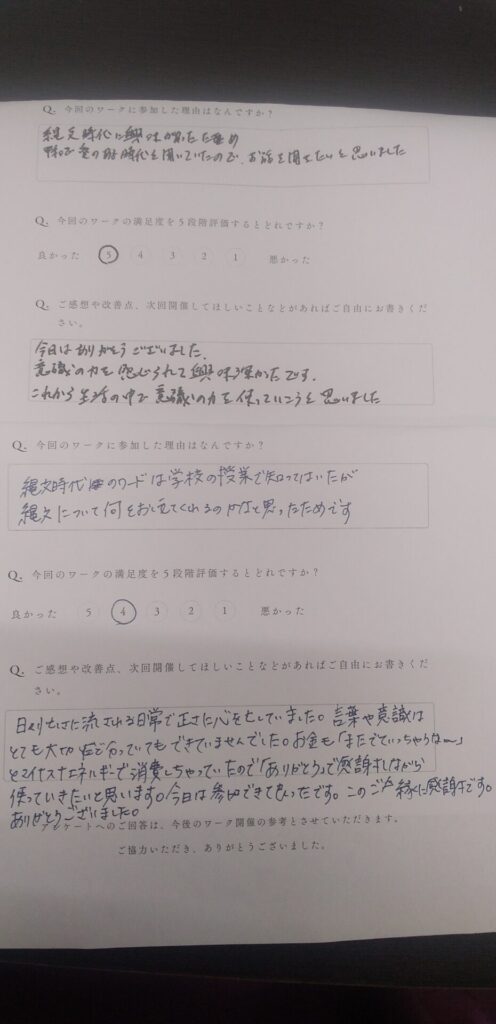 Q. 今回のワークに参加した理由はなんですか？
縄文時代に興味が有ったため
時代を聞いていたので、お話を聞きたいと思いました
Q. 今回のワークの満足度を5段階評価するとどれですか？
良かった 5 4 3 2 1 悪かった
Q. ご感想や改善点、次回開催してほしいことなどがあればご自由にお書きくだ
さい。
今日はありがとうございました。
意識の力を感じられて興味深かったです。
これから生活の中で意識の力を使っていこうと思いました
Q. 今回のワークに参加した理由はなんですか？
縄文時代のワードは学校の授業で知ってはいたが
縄文について何をおしえてくれるのかなと思ったためです
Q. 今回のワークの満足度を5段階評価するとどれですか？
良かった 5 4 3 2 1 悪かった
Q. ご感想や改善点、次回開催してほしいことなどがあればご自由にお書きくだ
さい。
日々忙しさに流される日常で正に心を亡していました。言葉や意識は
とても大切 だと分っていてもできていませんでした。お金も「またでていっちゃうなー」
とマイナスエネルギーで消費しちゃっていたので「ありがとう」で感謝しながら
使っていきたいと思います。今日は参加できてよかったです。このご縁に感謝です。
ありがとうございました。
アンケートへのご回答は、今後のワーク開催の参考とさせていただきます。
ご協力いただき、ありがとうございました。